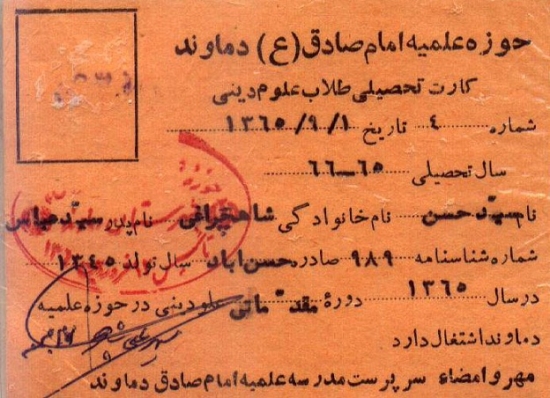 حوزه علمیه امام صادق (ع) دماوند
کارت تحصیلی طلاب علوم دینی
شماره ۴ تاریخ ۱۳۶۵/۹/۱
سال تحصیلی ۶۵-۶۶
نام سید حسن نام خانوادگی شاهچراغی نام پدر سید عباس
شماره شناسنامه ۹۸۹ صادره حسن آباد سال تولد ۱۳۴۵
در سال ۱۳۶۵ دوره مقدماتی علوم دینی در حوزه علمیه
دماوند اشتغال دارد
مهر و امضاء سرپرست مدرسه علمیه امام صادق دماوند